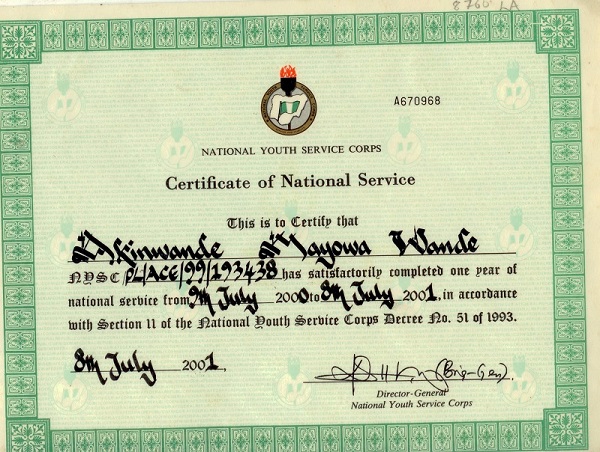 8766 LA
A670968
NATIONAL YOUTH SERVICE CORPS
Certificate of National Service
This is to Certify that
Akinwande Mayowa Wande
NYSC PL/ACE/99/193438 has satisfactorily completed one year of
national service from 9th July 2000 to 8th July 2001, in accordance
with Section 11 of the National Youth Service Corps Decree No. 51 of 1993.
8th July 2001.
(Brig-Gen).
Director-General
National Youth Service Corps